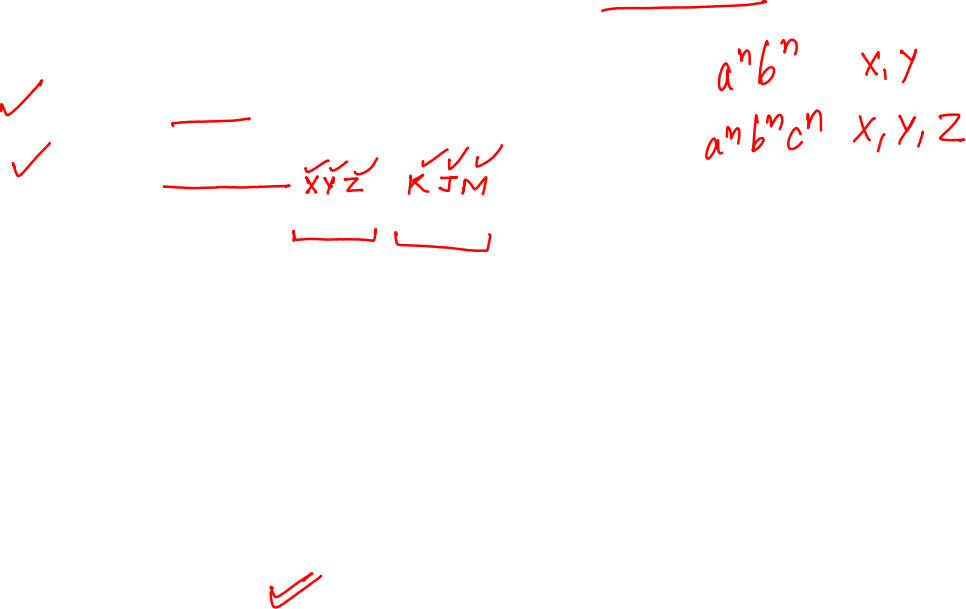 aⁿbⁿ X, Y
aⁿbⁿcⁿ X, Y, Z
XYZ KJM